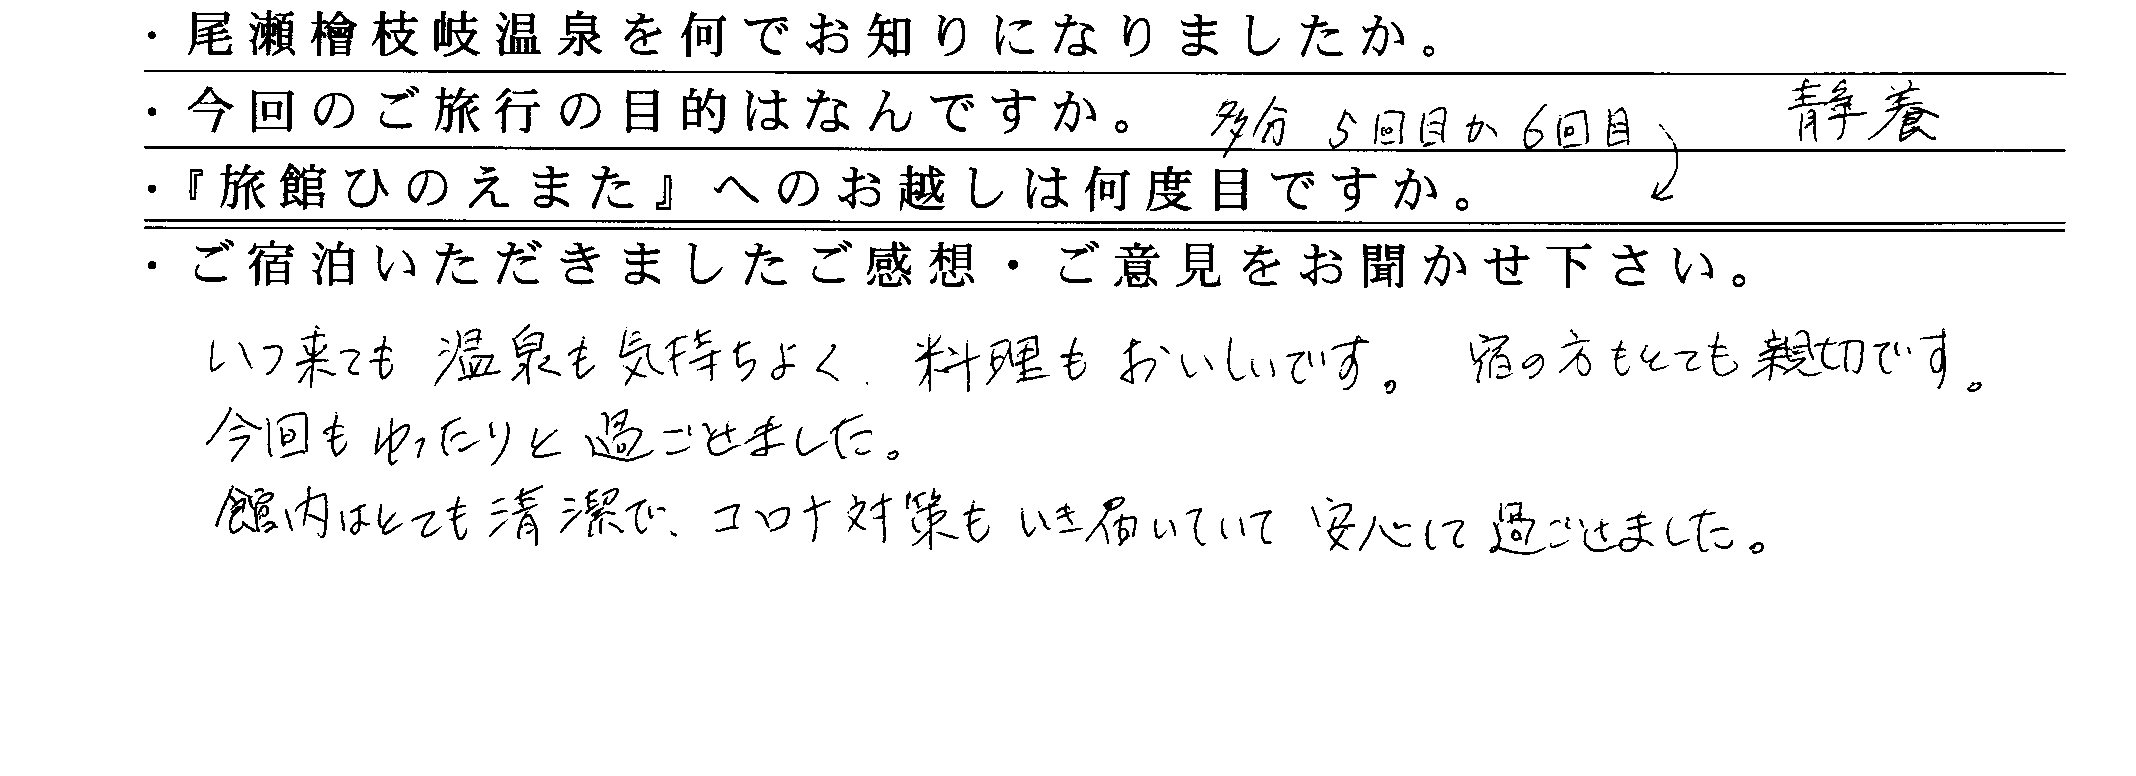 ・尾瀬檜枝岐温泉を何でお知りになりましたか。
・今回のご旅行の目的はなんですか。 多分 5回目か 6回目 静養
・『旅館ひのえまた』へのお越しは何度目ですか。
・ご宿泊いただきましたご感想・ご意見をお聞かせ下さい。
いつ来ても 温泉も気持ちよく、料理もおいしいです。 宿の方もとても親切です。
今回もゆったりと過ごせました。
館内はとても清潔で、コロナ対策もいき届いていて 安心して過ごせました。